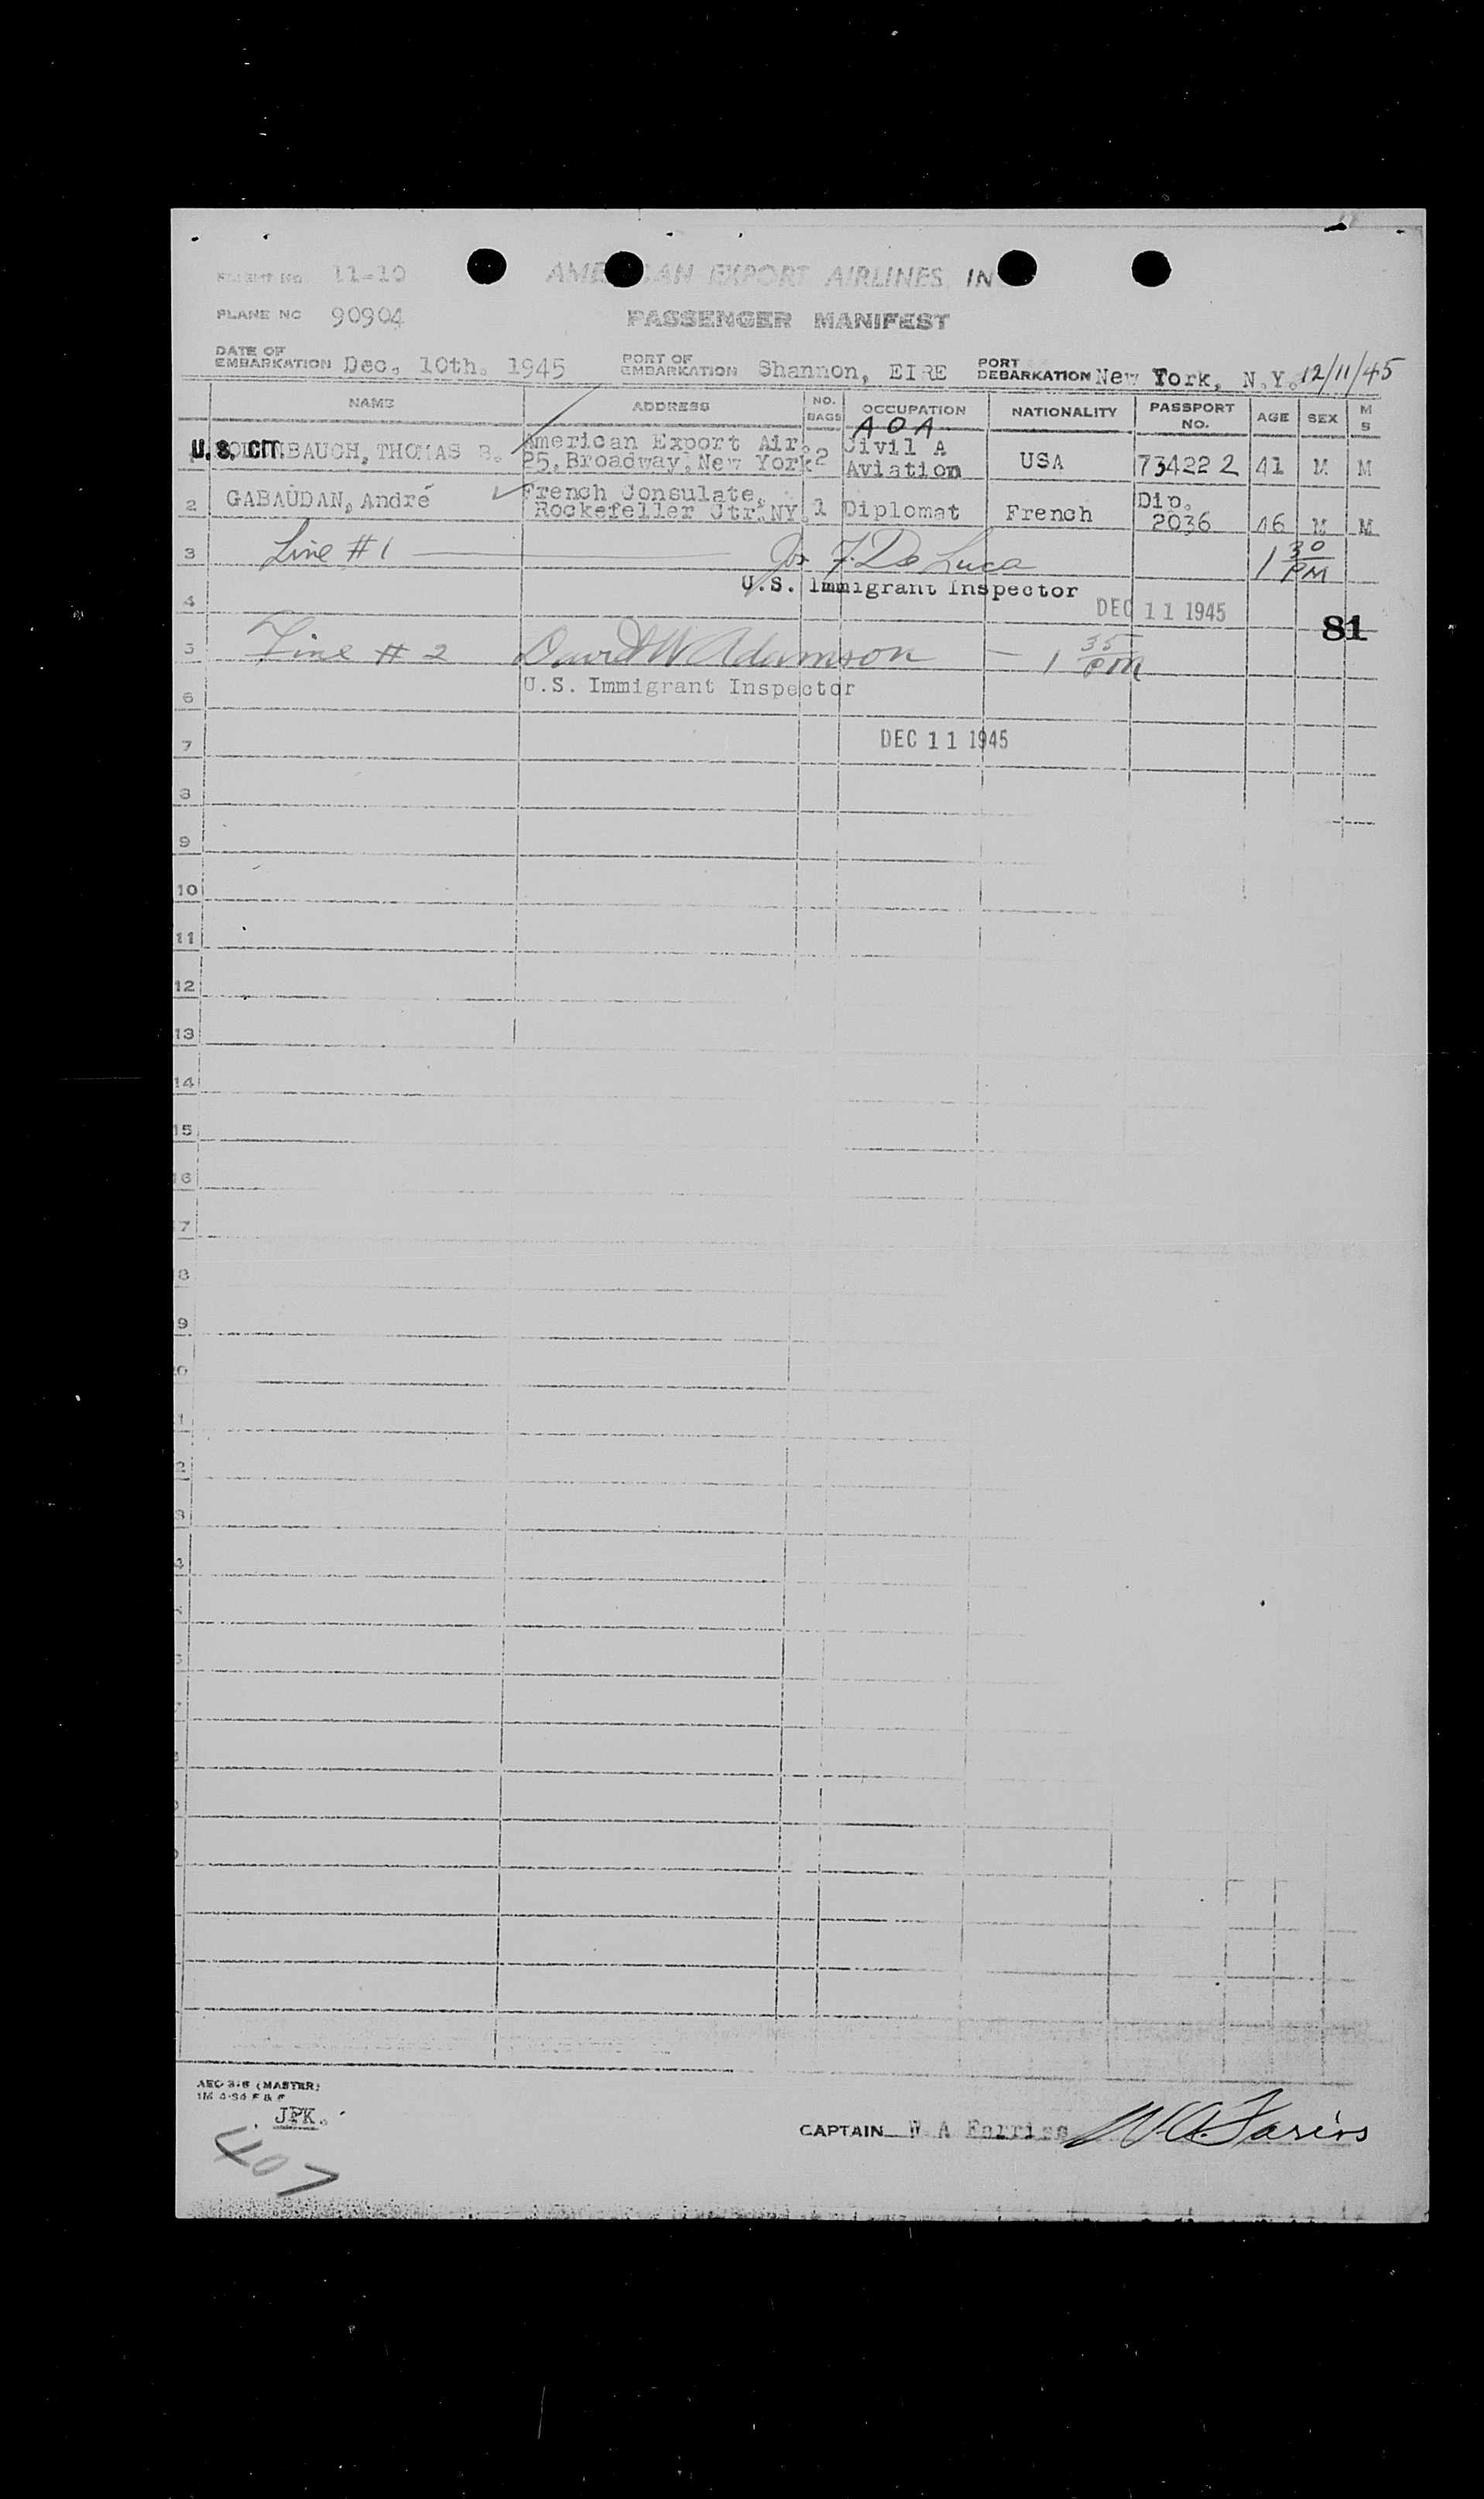 FLIGHT NO. 11-10 AMERICAN EXPORT AIRLINES, IN
PLANE NO 90904 PASSENGER MANIFEST
DATE OF EMBARKATION Dec. 10th. 1945 PORT OF EMBARKATION Shannon, EIRE PORT DEBARKATION New York, N.Y. 12/11/45
NAME ADDRESS NO. BAGS OCCUPATION NATIONALITY PASSPORT NO. AGE SEX M S
A O A
U.S. CIT. THOMAS B. American Export Air. 2 Civil A USA 734222 41 M M
25, Broadway, New York Aviation
2 GABAUDAN, André French Consulate, 1 Diplomat French Dip. 46 M M
Rockefeller Ctr. NY. 2036
3 Line #1 Jos F. De Luca 1 30 PM
U.S. Immigrant Inspector
4 DEC 11 1945 81
5 Line #2 David W Adamson — 1 35 PM
U.S. Immigrant Inspector
6
7 DEC 11 1945
8
9
10
11
12
13
14
15
16
7
8
9
0
1
2
3
4
AEO 3-8 (MASTER)
JPK.
407
CAPTAIN W A Farriss W.A. Fariss